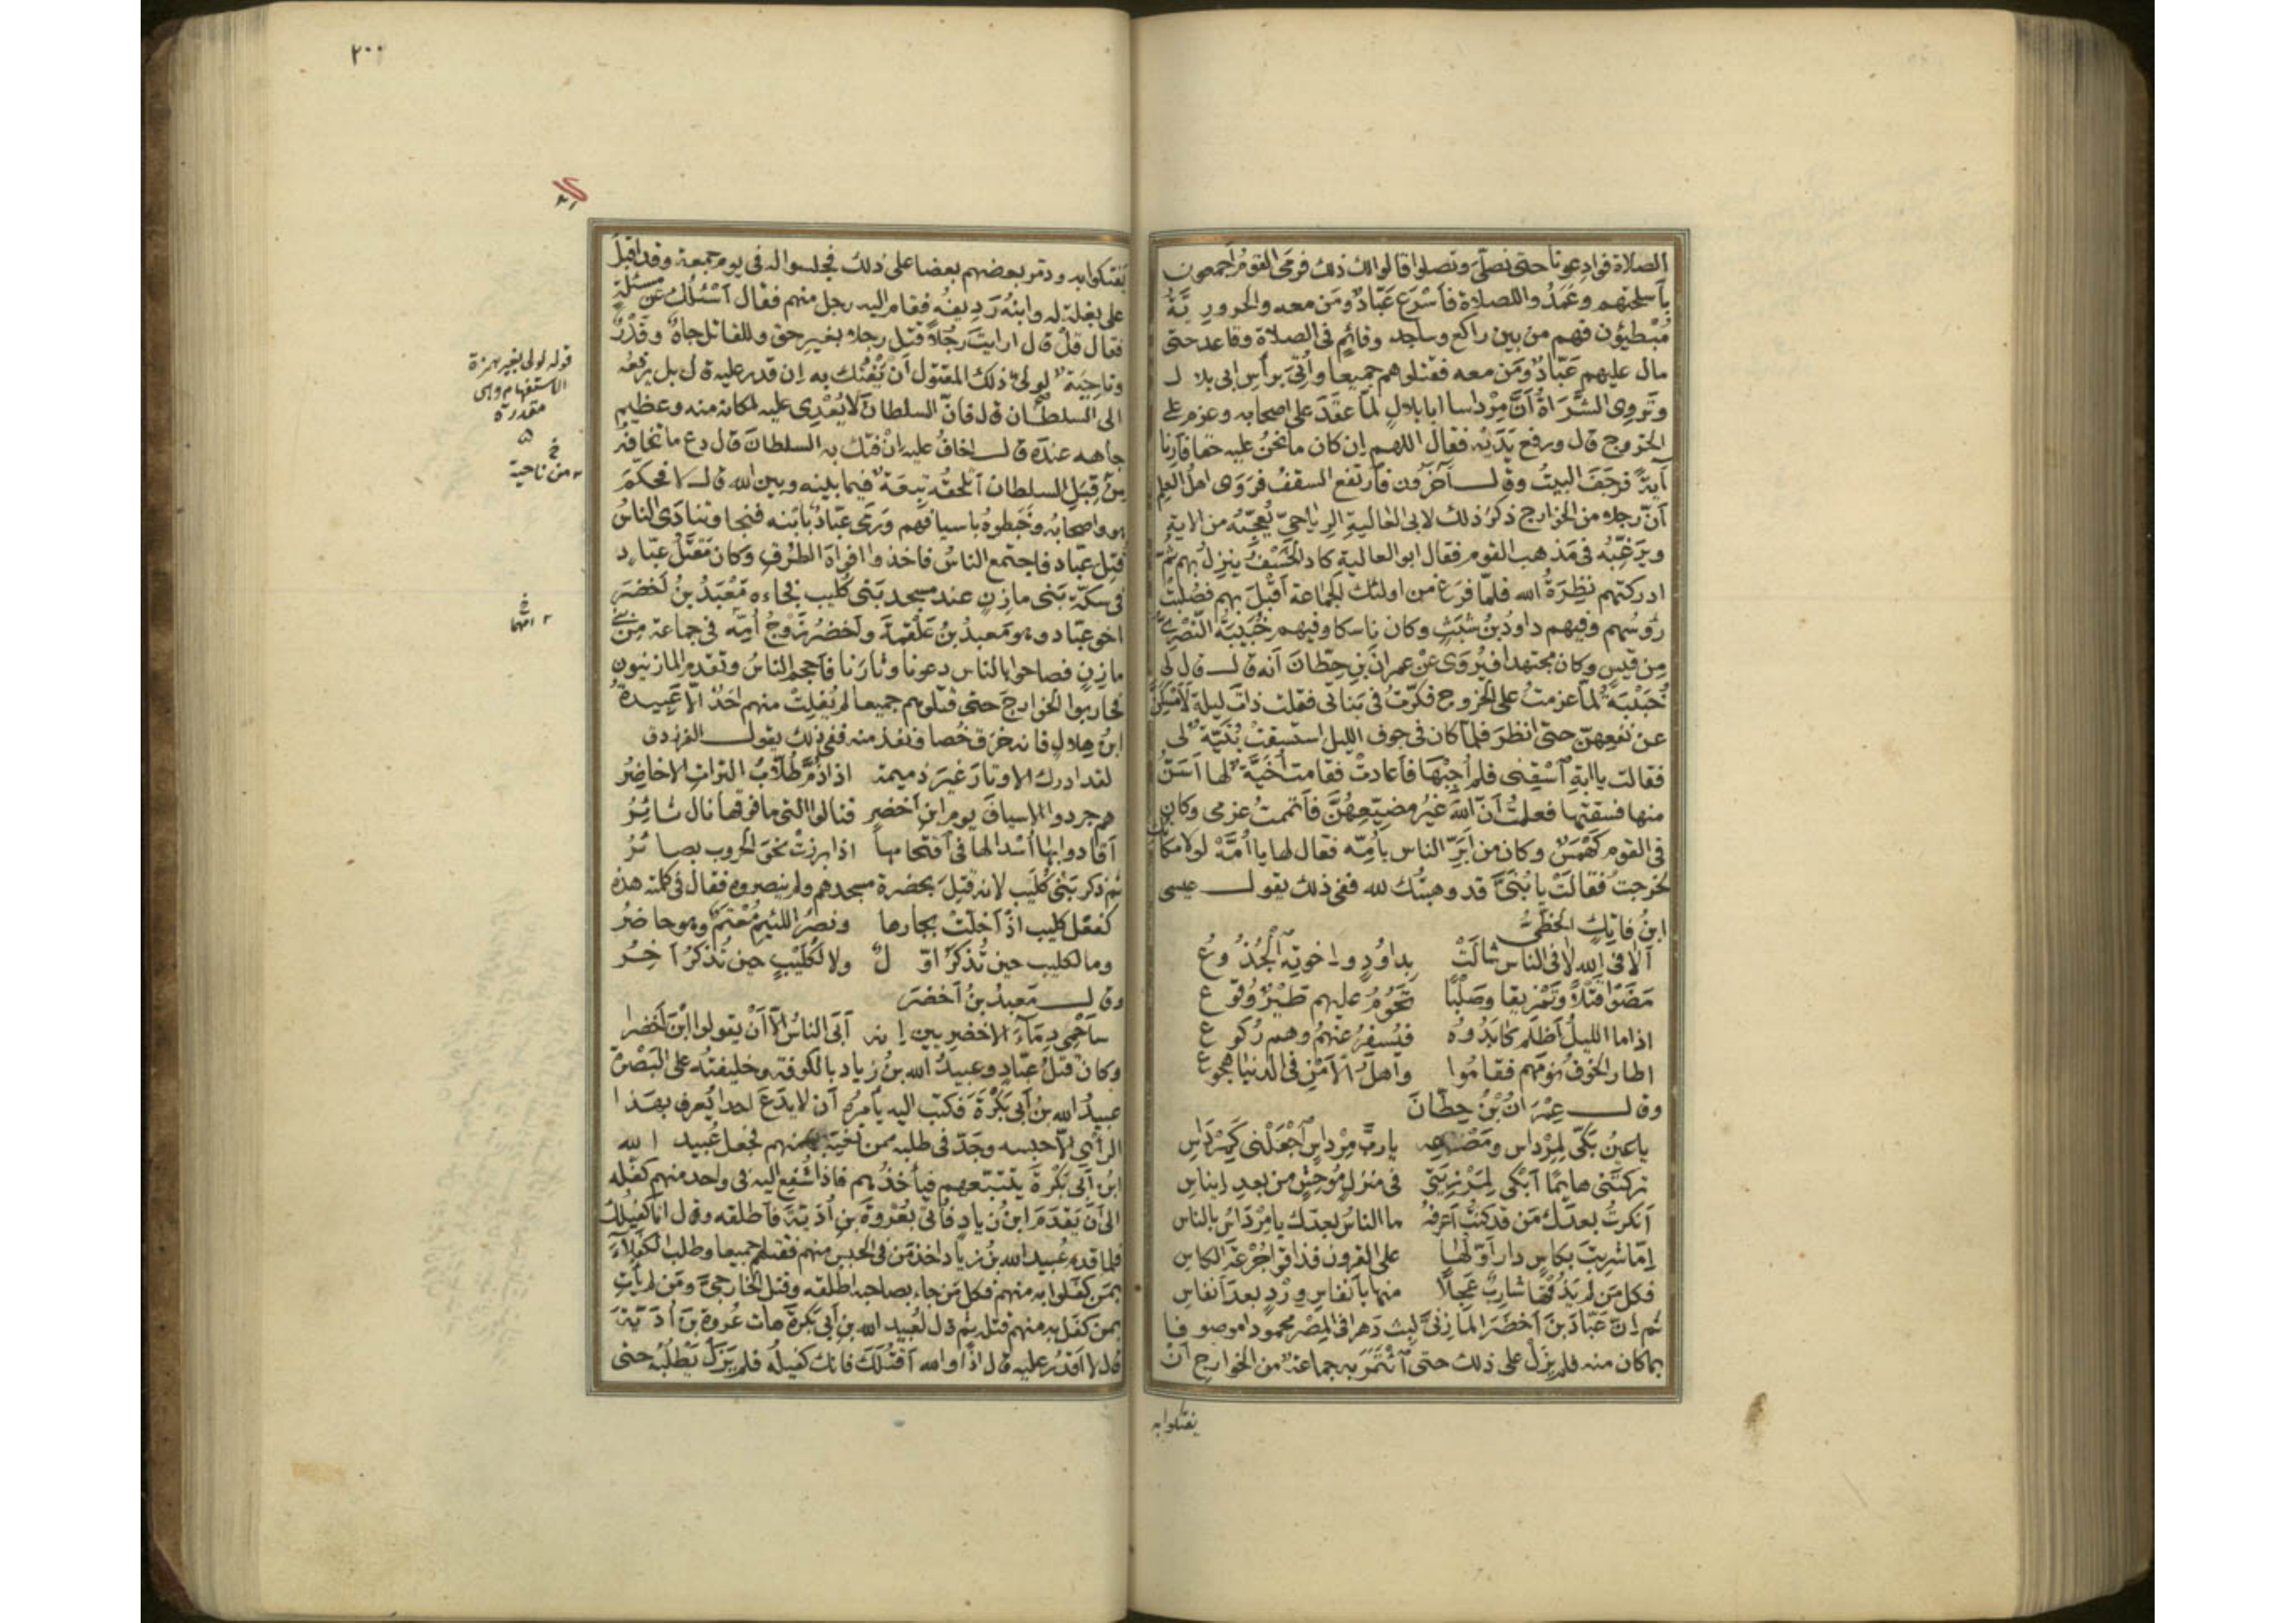 الصلاة فوادعونا حتى نصلّى وتصلوا قالوا لك ذلك فرمى القوم اجمعون
بأسلحتهم وعَمَدُوا للصلاة فأسْرَع عَبّادٌ ومَن معه والحَرورِيَّةُ
مُبْطئون فهم من بين راكع وساجد وقائم فى الصلاة وقاعد حتى
مال عليهم عَبّادٌ ومَن معه فقتلوهم جميعا وأُتِىَ برأس ابى بلال
وتَروِى الشُّراةُ أنّ مِرْداسا ابا بلال لمّا عقَدَ على اصحابه وعزم على
الخروج قال ورفع يَدَيْه فقال اللهم إن كان ما نحنُ عليه حقا فأرِنا
آيةً فرَجَفَ البيتُ وقال آخَرُون فأرتفع السقفُ فرَوَى اهلُ العِلم
أنّ رجلا من الخوارج ذكَرَ ذلك لابى العالية الرِياحىّ يُعجِّبُه من الاية
ويرغّبُه فى مَذهب القوم فقال ابو العالية كاد الخَسْفُ ينزلُ بهم ثُمّ
ادركتهم نظِرَةُ الله فلمّا فرَغ من اولئك الجماعة أقْبَلَ بهم فصُلبتْ
رؤُسُهم وفيهم داودُ بنُ شَبَثٍ وكان ناسكا وفيهم حُبَيبةُ النَّصْرِىُّ
مِن قيس وكان مجتهدا فيُروَى عنْ عمرانَ بنِ حِطّانَ أنه قال قال لى
حُبَيْبَةُ لمّا عزمتُ على الخروج فكّرتُ فى بَناتى فقلت ذاتَ ليلة لأُمْسِكَنَّ
عن نَفَقتِهنّ حتى انظرَ فلمّا كان فى جوف الليل استسقتْ بُنَيّةٌ لى
فقالت يا ابةِ اسْقِنى فلم أُجِبْهَا فأعادتْ فقامت أُخَيَّةٌ لها أسَنُّ
منها فسقتها فعلمتُ أنّ اللهَ غيرُ مضيّعِهنَّ فأتممتُ عزمى وكان
فى القوم كَهْمَسٌ وكان من أبَرّ الناس بأُمّه فقال لها يا أُمَّهْ لولا مكانُك
لخرجتُ فقالتْ يا بُنَىَّ قد وهبتُك لله ففى ذلك يقول عيسى
ابنُ فاتِكٍ الخَطّىُّ
ألا فى الله لا فى الناس شالَتْ بداوُدٍ وإخوتِه الجُذُوعُ
مَضَوْا قَتْلاً وتَمْزيقا وصَلْبًا تَحُومُ عليهم طَيْرٌ وُقُوعُ
اذا ما الليلُ أظلَم كابَدُوهُ فيُسفِرُ عنهُمُ وهم رُكوعُ
اطار الخوفُ نومَهم فقامُوا وأهلُ الأمْنِ فى الدنيا هُجوعُ
وقال عِمْرانُ بْنُ حِطّانَ
يا عينُ بَكّى لِمِرْداسٍ ومَصْرَعِهِ يا ربَّ مِرْداسٍ اجْعَلْنى كَمِرْداسِ
تركتَنى هائمًا أبْكى لِمَرْزِئَتى فى منزل مُوحِشٍ من بعدِ إيناسِ
أنكرتُ بعدَك مَن قد كنتُ أعرفُهُ ما الناسُ بعدَك يا مِرْداسُ بالناسِ
إمّا شرِبتَ بكاسٍ دار أوّلُها على القرون فذاقوا جُرْعَةَ الكاسِ
فكل مَن لم يَذُقْها شاربٌ عَجِلاً منها بأنفاسِ وِرْدٍ بعدَ أنفاسِ
ثم إنّ عَبّادَ بنَ أخضَرَ المازِنىَّ لبث دَهرا فى المِصْر محمودا موصوفا
بما كان منه فلم يزَلْ على ذلك حتى ائْتَمَرَ به جماعةٌ من الخوارج أنْ
يفتكوا به
٢٠٠
يَفتكوا به وذمّر بعضهم بعضا على ذلك فجلسوا له فى يوم جمعة وقد اقبلَ
على بغلة له وابنُه رَدِيفُه فقام اليه رجل منهم فقال أسْئلُك عن مسئلةٍ
فقال قُلْ قال ارايتَ رجُلاً قتل رجلا بغير حق وللقاتل جاهٌ وقَدْرٌ
وناحِيَةٌ لولىّ ذلك المقتول أنْ يَفْتُك به إن قدر عليه قال بل يرفعُه
الى السلطان قال فانّ السلطانَ لا يُعْدِى عليه لمكانه منه وعظيم
جاهه عندَه قال اخافُ عليه إنْ فتك به السلطانَ قال دع ما تخافُه
مِن قِبَلِ السلطان أتلحقُه تبِعَةٌ فيما بينه وبين الله قال لا فحكّمَ
هو واصحابُه وخَبَطوهُ بأسيافهم ورَمَى عبّادٌ بابْنه فنجا وتنادَى الناسُ
قُتِل عبّاد فاجتمع الناسُ فاخذوا افواهَ الطُرُقِ وكان مَقتَلُ عبّاد
فى سكّةِ بَنى مازِنٍ عند مسجد بَنى كُليب فجاءه مَعْبَدُ بنُ أخضَرَ
اخو عبّاد وهو مَعبدُ بنُ عَلقمَةَ وأخضرُ زوجُ أُمّه فى جماعة مِن بَنى
مازِنٍ فصاحوا بالناس دعونا وثأرَنا فأحجم الناسُ وتقدم المازنيون
فحاربوا الخوارجَ حتى قتلوهم جميعا لم يُفلِتْ منهم احَدٌ الاّ عُبيدةُ
ابنُ هلالٍ فانه خرَق خُصّا ونفذ منه ففى ذلك يقول الفرزدق
لقد ادرك الاوتارَ غيرَ ذميمة اذا ذُمّ طُلاّبُ التراتِ الاخاضِرُ
هم جرّدوا الاسيافَ يوم ابنِ أخضرٍ فنالوا التى ما فوقها نال ثائِرُ
أقادوا بها أُسْدا لها فى اقتحامها اذا برزتْ نحوَ الحروب بصائرُ
ثم ذكر بَنى كُلَيب لانه قُتِلَ بحضرة مسجدهم ولم ينصروه فقال فى كلمته هذه
كفعْل كليب اذْ أخلّتْ بجارها ونصْرُ اللئيمِ مُعْتِمٌ وهو حاضرُ
وما لكليب حين تُذكَرُ أوّلٌ ولا لكُلَيْبٍ حين تُذكَرُ آخِرُ
وقال مَعبدُ بنُ أخضَرَ
سأحْمِى دِمَاءَ الاخضرِيين إنه أبَى الناسُ الاّ أنْ يقولوا ابْنَ أخضرا
وكان قتْلُ عبّادٍ وعبيدُ الله بنُ زياد بالكوفة وخليفتُه على البَصْرة
عبيدُ الله بنُ أبى بَكْرَةَ فكتب اليه يأمرُه أن لا يدَعَ احدا يُعرف بهذا
الرأى الاّ حبسه وجَدّ فى طلبه ممن تغيّبَ منهم فجعل عُبيد الله
ابنُ أبى بَكْرةَ يتتبّعهم فيأخذُهم فاذا شُفع اليه فى واحد منهم كفله
الى أنْ يَقدَمَ ابنُ زيادٍ فأُتى بعُروةَ بنِ أُدَيّةَ فأطلقه وقال انا كفيلُك
فلما قدم عُبيد الله بنُ زياد اخذ مَن فى الحبس منهم فقتلهم جميعا وطلب الكُفَلآءَ
بمَن كفلوا به منهم فكل مَن جاء بصاحبه اطلقه وقتل الخارجىَّ ومَن لم يأتِ
بمن كفَل به منهم قتله ثم قال لعُبيد الله بنِ أبى بَكرةَ هات عُروةَ بنَ أُدَيّةَ
قال لا اقدرُ عليه قال اذًا والله أقتُلَكَ فانك كفيلُه فلم يَزَلْ يَطْلُبُه حتى
قوله لولى بغير همزة
الاستفهام وهى
مقدرة
خ
من ناحية
خ